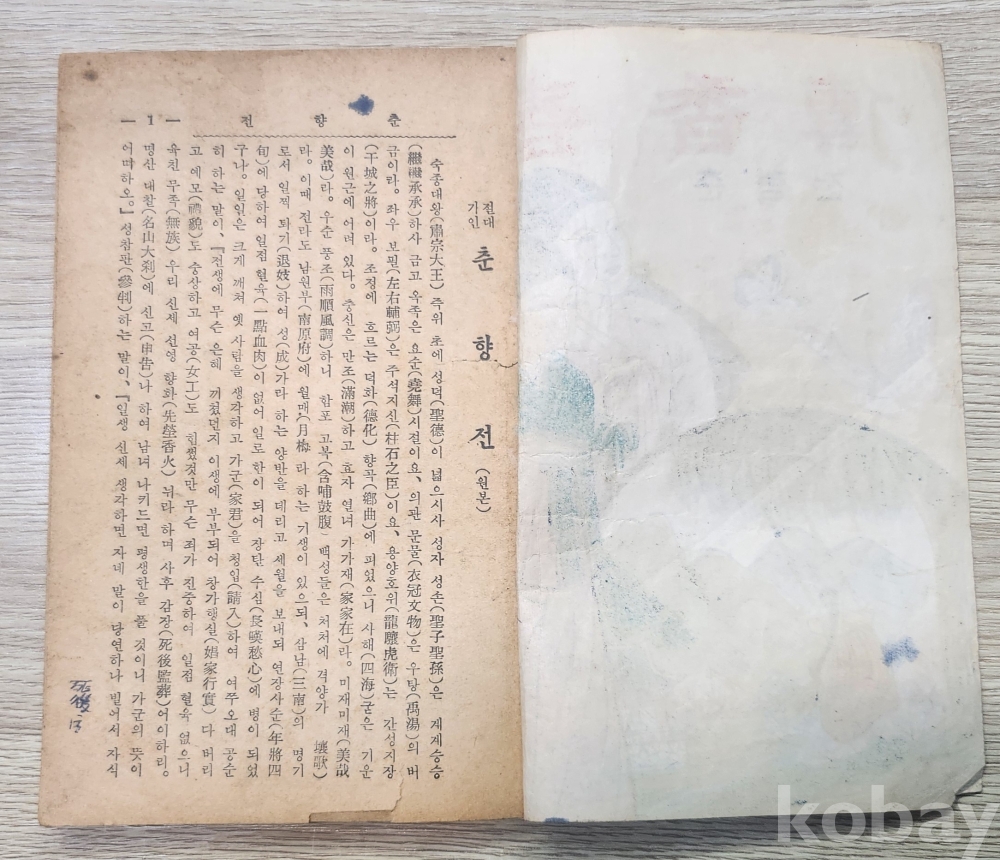 춘향전
절대
가인
춘향전(원본)
숙종대왕(肅宗大王) 즉위 초에 성덕(聖德)이 넓으시사 성자 성손(聖子聖孫)은 계계승승
(繼繼承承)하사 금고 옥족은 요순(堯舞)시절이요, 의관 문물(衣冠文物)은 우탕(禹湯)의 버
금이라. 좌우 보필(左右輔弼)은 주석지신(柱石之臣)이요, 용양호위(龍驤虎衛)는 간성지장
(干城之將)이라. 조정에 흐르는 덕화(德化) 향곡(鄕曲)에 피었으니 사해(四海)굳은 기운
이 원근에 어려 있다. 충신은 만조(滿潮)하고 효자 열녀 가가재(家家在)라. 미재미재(美哉
美哉)라. 우순 풍조(雨順風調)하니 함포 고복(含哺鼓腹) 백성들은 처처에 격양가 壤歌)
라. 이때 전라도 남원부(南原府)에 월매(月梅)라 하는 기생이 있으되, 삼남(三南)의 명기
로서 일찍 퇴기(退妓)하여 성(成)가라 하는 양반을 데리고 세월을 보내되 연장사순(年將四
旬)에 당하여 일점 혈육(一點血肉)이 없어 일로 한이 되어 장탄 수심(長嘆愁心)에 병이 되었
구나. 일일은 크게 깨쳐 옛 사람을 생각하고 가군(家君)을 청입(請入)하여 여쭈오대 공순
히 하는 말이, 『전생에 무슨 은혜 끼쳤던지 이생에 부부되어 창가행실(娼家行實) 다 버리
고 예모(禮貌)도 숭상하고 여공(女工)도 힘썼것만 무슨 죄가 진중하여 일점 혈육 없으니
육친 무족(無族) 우리 신세 선영 향화(先塋香火) 뉘라 하며 사후 감장(死後監葬)어이하리.
명산 대찰(名山大刹)에 신고(申告)나 하여 남녀 나키드면 평생한을 풀 것이니 가군의 뜻이
어떠하오.』 성참판(參判)하는 말이, 『일생 신세 생각하면 자네 말이 당연하나 빌어서 자식
— 1 —
死後
kobay